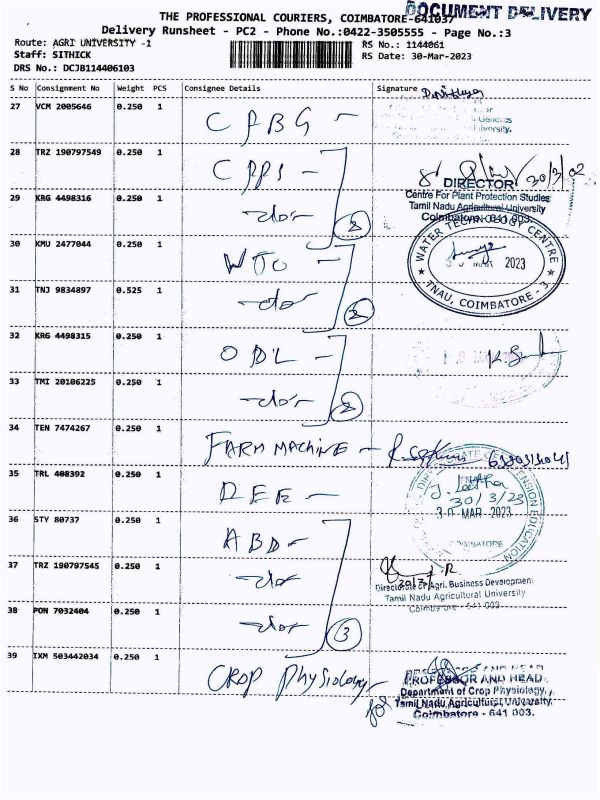 THE PROFESSIONAL COURIERS, COIMBATORE-641037
DOCUMENT DELIVERY
Delivery Runsheet - PC2 - Phone No.:0422-3505555 - Page No.:3
Route: AGRI UNIVERSITY -1
RS No.: 1144061
Staff: SITHICK
RS Date: 30-Mar-2023
DRS No.: DCJB114406103
S No Consignment No Weight PCS Consignee Details Signature
27 VCM 2005646 0.250 1 CPBG -
Genetics
University.
28 TRZ 190797549 0.250 1 CPPS -
DIRECTOR
Centre For Plant Protection Studies
29 KRG 4498316 0.250 1 -do- 2
Tamil Nadu Agricultural University
Coimbatore - 641 003.
30 KMU 2477044 0.250 1 WTC -
WATER TECHNOLOGY CENTRE
2023
TNAU, COIMBATORE - 3
31 TNJ 9834897 0.525 1 -do- 2
32 KRG 4498315 0.250 1 ODL -
33 TMI 20106225 0.250 1 -do- 2
34 TEN 7474267 0.250 1 FARM MACHINE -
35 TRL 408392 0.250 1 DEE -
30/3/23
30 MAR 2023
EXTENSION EDUCATION
COIMBATORE
36 STY 80737 0.250 1 ABD -
37 TRZ 190797545 0.250 1 -do-
Directorate of Agri. Business Development
Tamil Nadu Agricultural University
Coimbatore - 641 003
38 PON 7032404 0.250 1 -do- 3
39 IXM 503442034 0.250 1 CROP Physiology -
PROFESSOR AND HEAD
Department of Crop Physiology,
Tamil Nadu Agricultural University,
Coimbatore - 641 003.